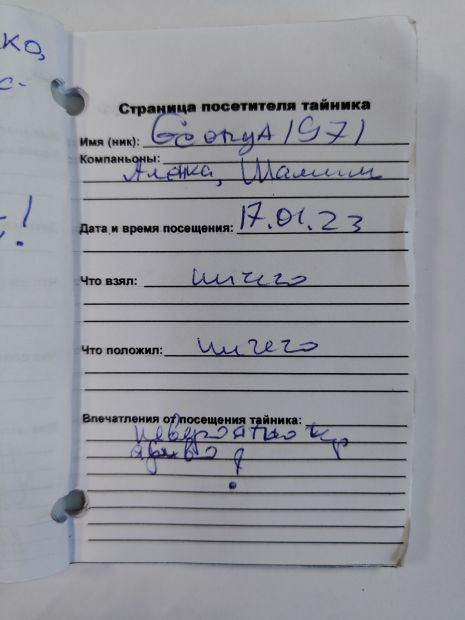 ко,
с-
!
Страница посетителя тайника
Имя (ник):
Компаньоны:
Алёнка, Шамим
Дата и время посещения: 17.01.23
Что взял: ничего
Что положил: ничего
Впечатления от посещения тайника:
невероятно
!